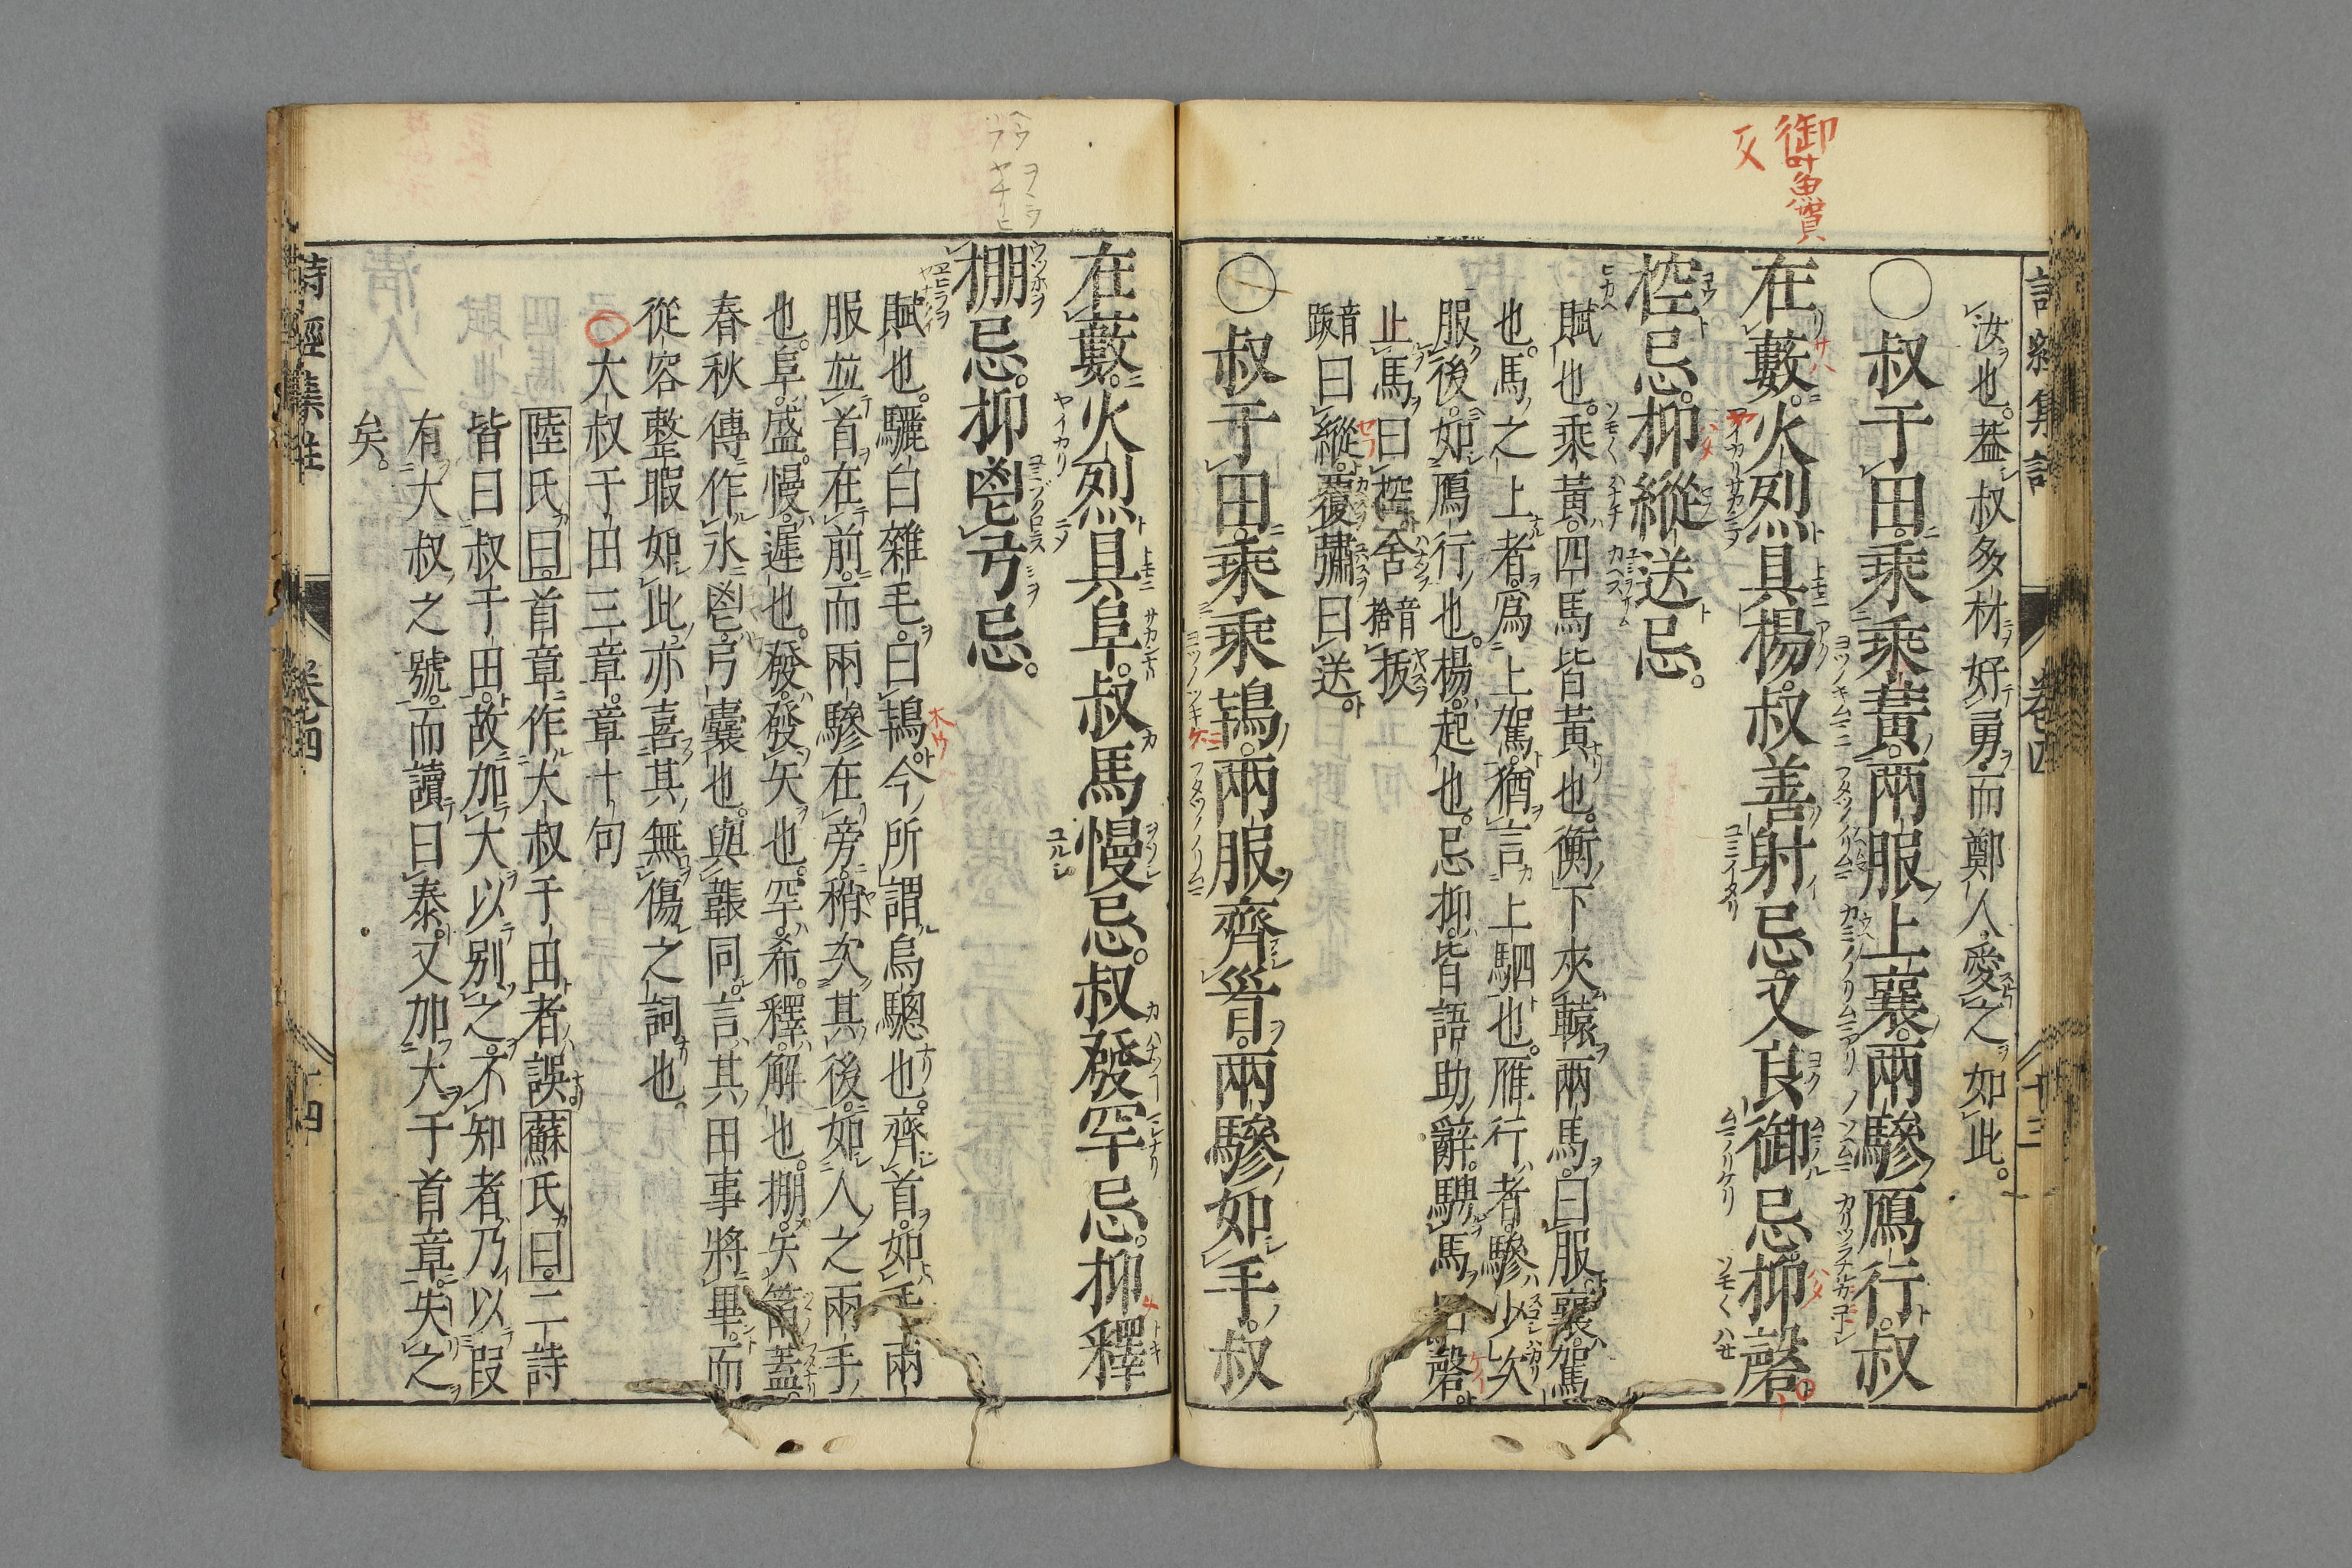 御叶魚賀
反
詩經集註 卷四 十三
汝也。蓋叔多材好勇而鄭人愛之如此。
○叔于田。乘乘黃。兩服上襄。兩驂鴈行。叔
在藪。火烈具揚。叔善射忌。又良御忌。抑磬
控忌。抑縱送忌。
賦也。乘黃。四馬皆黃也。衡下夾轅兩馬。曰服。襄。駕
也。馬之上者。爲上駕。猶言上駟也。雁行者。驂少次
服後。如鴈行也。揚。起也。忌抑。皆語助辭。騁馬曰磬。
止馬曰控。舍音捨拔
音跋曰縱。覆彇曰送。
○叔于田。乘乘鴇。兩服齊首。兩驂如手。叔
在藪。火烈具阜。叔馬慢忌。叔發罕忌。抑釋
掤忌。抑鬯弓忌。
賦也。驪白雜毛。曰鴇。今所謂烏驄也。齊首。如手。兩
服並首在前。而兩驂在旁。稍次其後。如人之兩手
也。阜。盛。慢。遲也。發。發矢也。罕。希。釋。解也。掤。矢筩蓋。
春秋傳作冰。鬯。弓囊也。與韔同。言其田事將畢。而
從容整暇如此。亦喜其無傷之詞也。
○大叔于田三章。章十句
陸氏曰。首章作大叔于田者誤。蘇氏曰。二詩
皆曰叔于田。故加大以別之。不知者乃以叚
有大叔之號。而讀曰泰。又加大于首章。失之
矣。
詩經集註 卷四 十四